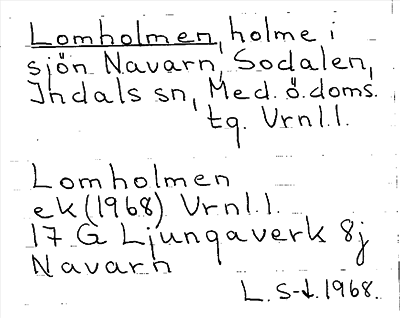 Lomholmen, holme i
sjön Navarn, Sodalen,
Indals sn, Med. ö. doms.
tg. Vrnl.l.
Lomholmen
ek (1968) Vrnl.l.
17 G Ljungaverk 8j
Navarn
L. S-d. 1968.